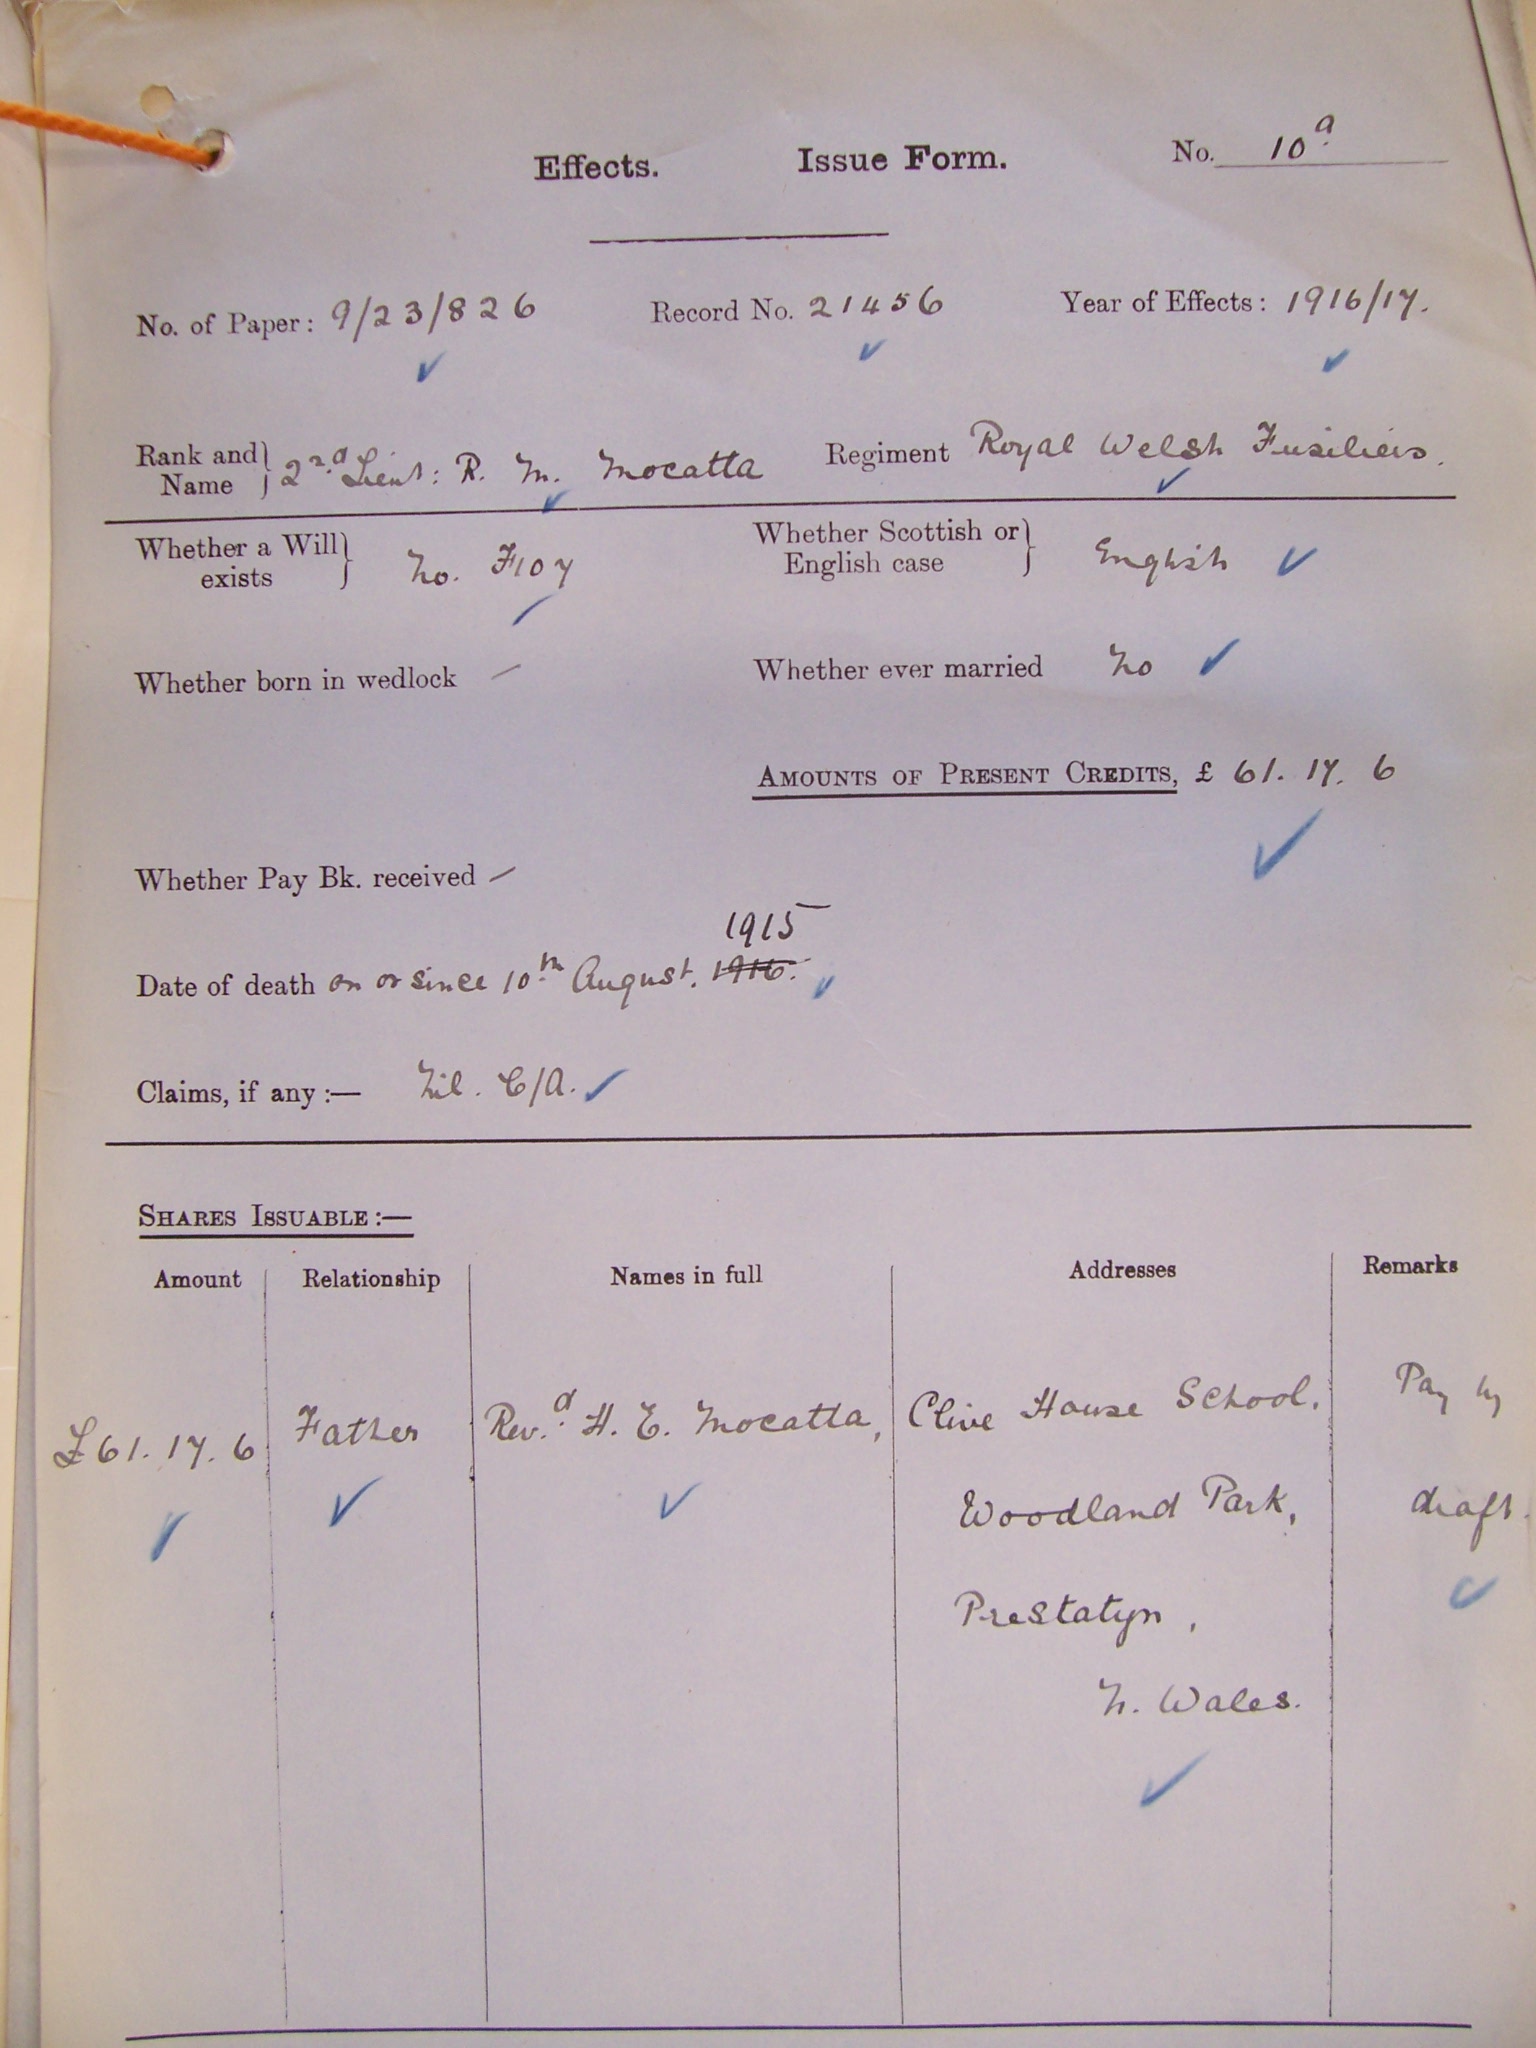 Effects. Issue Form. No. 10a
No. of Paper: 9/23/826 Record No. 21456 Year of Effects: 1916/17.
Rank and Name } 2nd Lieut: R. M. Mocatta Regiment Royal Welsh Fusiliers.
Whether a Will exists } No. F107 Whether Scottish or English case } English
Whether born in wedlock – Whether ever married No
AMOUNTS OF PRESENT CREDITS, £ 61. 17. 6
Whether Pay Bk. received –
1915
Date of death on or since 10th August. 1916.
Claims, if any :— Nil. C/A.
SHARES ISSUABLE :—
Amount Relationship Names in full Addresses Remarks
£61. 17. 6 Father Revd. H. E. Mocatta, Clive House School, Pay by
Woodland Park, draft.
Prestatyn,
N. Wales.